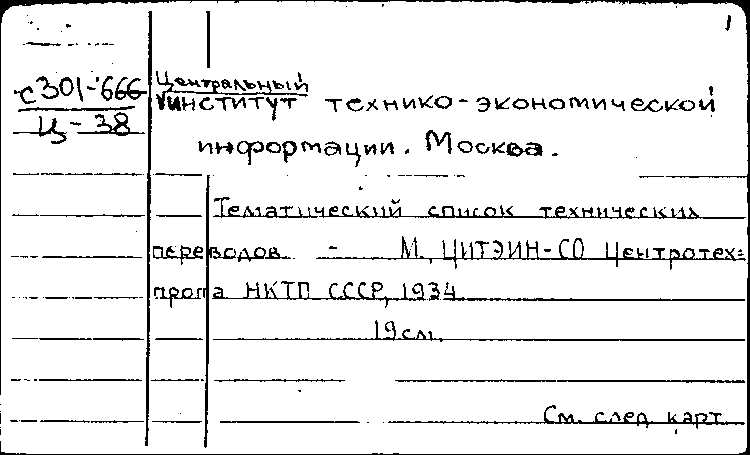 1
с301-666
Ц-38
Центральный
институт технико-экономической
информации. Москва.
Тематический список технических
переводов. - М., ЦИТЭИН-СО Центротех=
пропа НКТП СССР, 1934
19см.
См. след. карт.